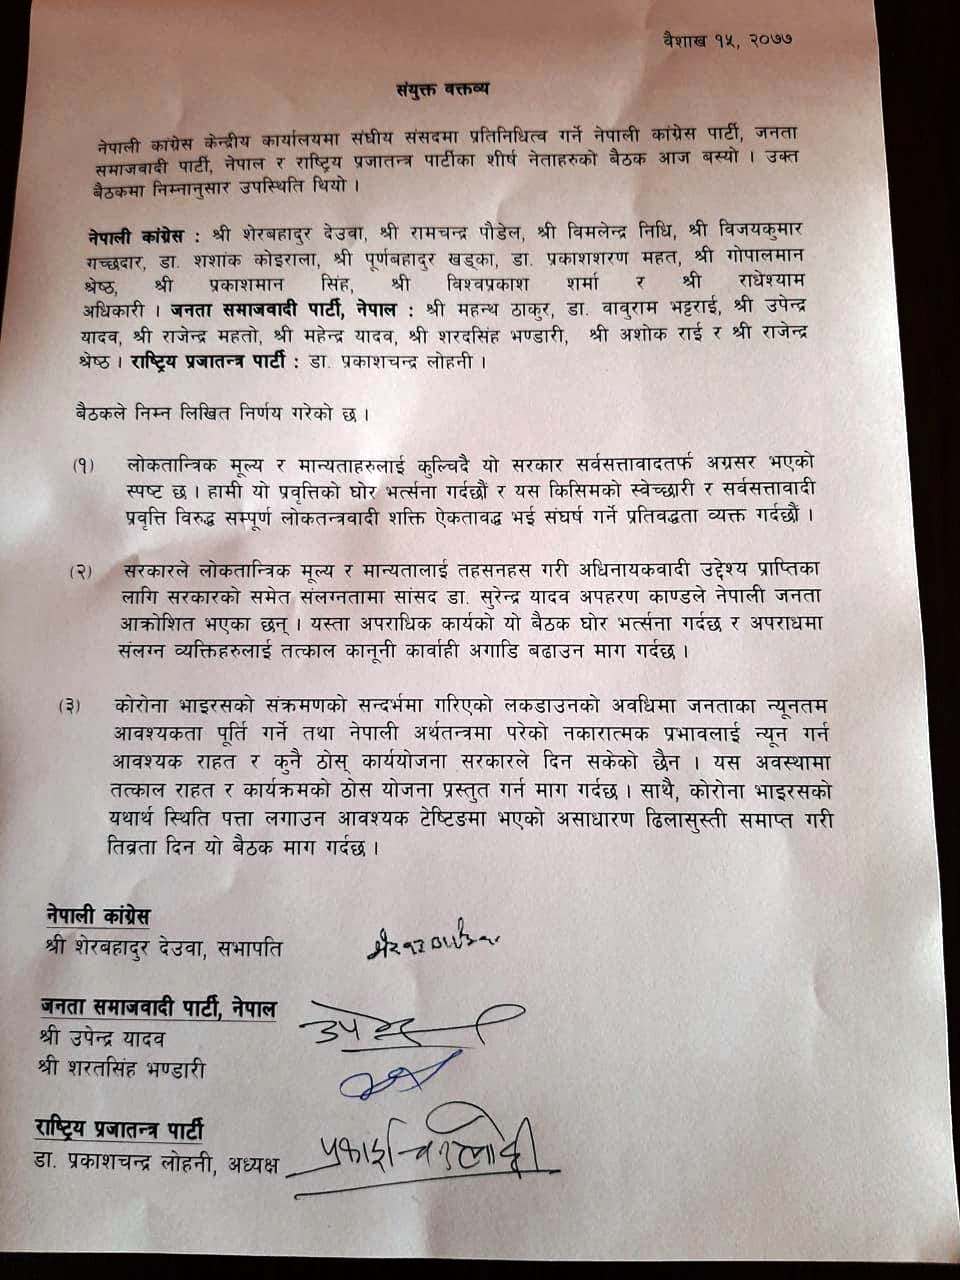 वैशाख १५, २०७७
संयुक्त वक्तव्य
नेपाली कांग्रेस केन्द्रीय कार्यालयमा संघीय संसदमा प्रतिनिधित्व गर्ने नेपाली कांग्रेस पार्टी, जनता
समाजवादी पार्टी, नेपाल र राष्ट्रिय प्रजातन्त्र पार्टीका शीर्ष नेताहरुको बैठक आज बस्यो । उक्त
बैठकमा निम्नानुसार उपस्थिति थियो ।
नेपाली कांग्रेस : श्री शेरबहादुर देउवा, श्री रामचन्द्र पौडेल, श्री विमलेन्द्र निधि, श्री विजयकुमार
गच्छदार, डा. शशांक कोइराला, श्री पूर्णबहादुर खड्का, डा. प्रकाशशरण महत, श्री गोपालमान
श्रेष्ठ, श्री प्रकाशमान सिंह, श्री विश्वप्रकाश शर्मा र श्री राधेश्याम
अधिकारी । जनता समाजवादी पार्टी, नेपाल : श्री महन्थ ठाकुर, डा. वावुराम भट्टराई, श्री उपेन्द्र
यादव, श्री राजेन्द्र महतो, श्री महेन्द्र यादव, श्री शरदसिंह भण्डारी, श्री अशोक राई र श्री राजेन्द्र
श्रेष्ठ । राष्ट्रिय प्रजातन्त्र पार्टी : डा. प्रकाशचन्द्र लोहनी ।
बैठकले निम्न लिखित निर्णय गरेको छ ।
(१) लोकतान्त्रिक मूल्य र मान्यताहरुलाई कुल्चिदै यो सरकार सर्वसत्तावादतर्फ अग्रसर भएको
स्पष्ट छ । हामी यो प्रवृत्तिको घोर भर्त्सना गर्दछौं र यस किसिमको स्वेच्छारी र सर्वसत्तावादी
प्रवृत्ति विरुद्ध सम्पूर्ण लोकतन्त्रवादी शक्ति ऐकतावद्ध भई संघर्ष गर्ने प्रतिवद्धता व्यक्त गर्दछौं ।
(२) सरकारले लोकतान्त्रिक मूल्य र मान्यतालाई तहसनहस गरी अधिनायकवादी उद्देश्य प्राप्तिका
लागि सरकारको समेत संलग्नतामा सांसद डा. सुरेन्द्र यादव अपहरण काण्डले नेपाली जनता
आक्रोशित भएका छन् । यस्ता अपराधिक कार्यको यो बैठक घोर भर्त्सना गर्दछ र अपराधमा
संलग्न व्यक्तिहरुलाई तत्काल कानूनी कार्वाही अगाडि बढाउन माग गर्दछ ।
(३) कोरोना भाइरसको संक्रमणको सन्दर्भमा गरिएको लकडाउनको अवधिमा जनताका न्यूनतम
आवश्यकता पूर्ति गर्ने तथा नेपाली अर्थतन्त्रमा परेको नकारात्मक प्रभावलाई न्यून गर्न
आवश्यक राहत र कुनै ठोस् कार्ययोजना सरकारले दिन सकेको छैन । यस अवस्थामा
तत्काल राहत र कार्यक्रमको ठोस योजना प्रस्तुत गर्न माग गर्दछ । साथै, कोरोना भाइरसको
यथार्थ स्थिति पत्ता लगाउन आवश्यक टेष्टिङमा भएको असाधारण ढिलासुस्ती समाप्त गरी
तिव्रता दिन यो बैठक माग गर्दछ ।
नेपाली कांग्रेस
श्री शेरबहादुर देउवा, सभापति
जनता समाजवादी पार्टी, नेपाल
श्री उपेन्द्र यादव
श्री शरतसिंह भण्डारी
राष्ट्रिय प्रजातन्त्र पार्टी
डा. प्रकाशचन्द्र लोहनी, अध्यक्ष